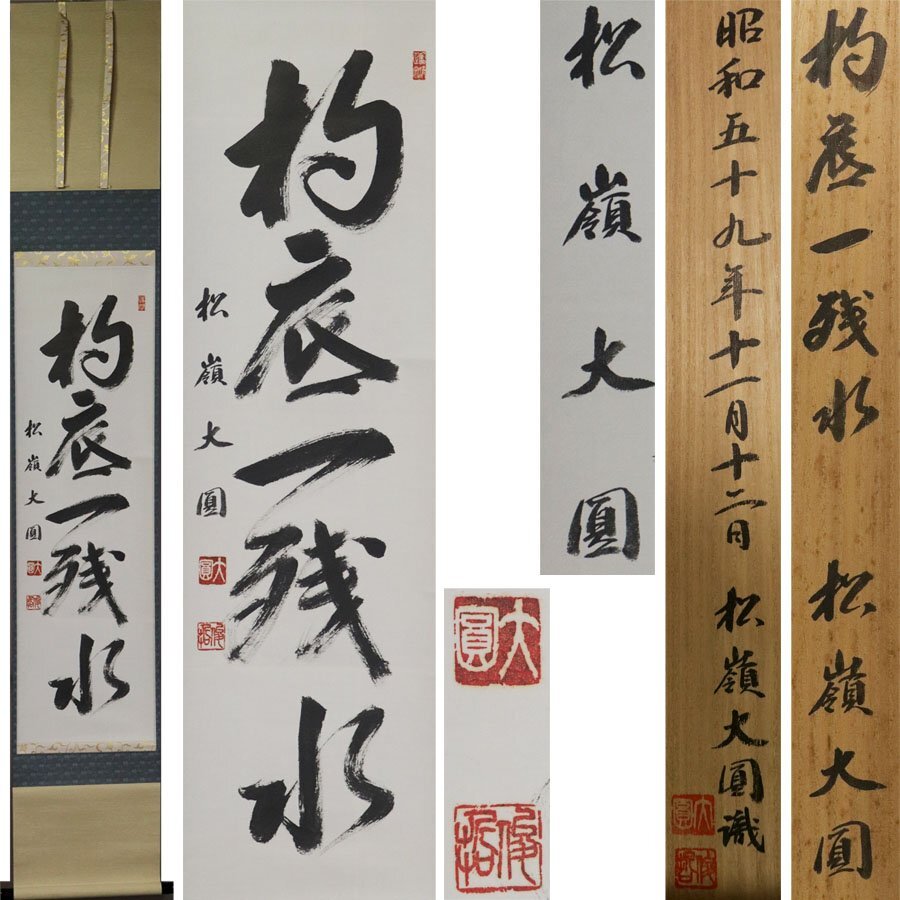 杓底一残水
松嶺大圓
杓底一残水
松嶺大圓
大圓
松嶺大圓
大圓
昭和五十九年十一月十二日 松嶺大圓識
大圓
杓底一残水 松嶺大圓